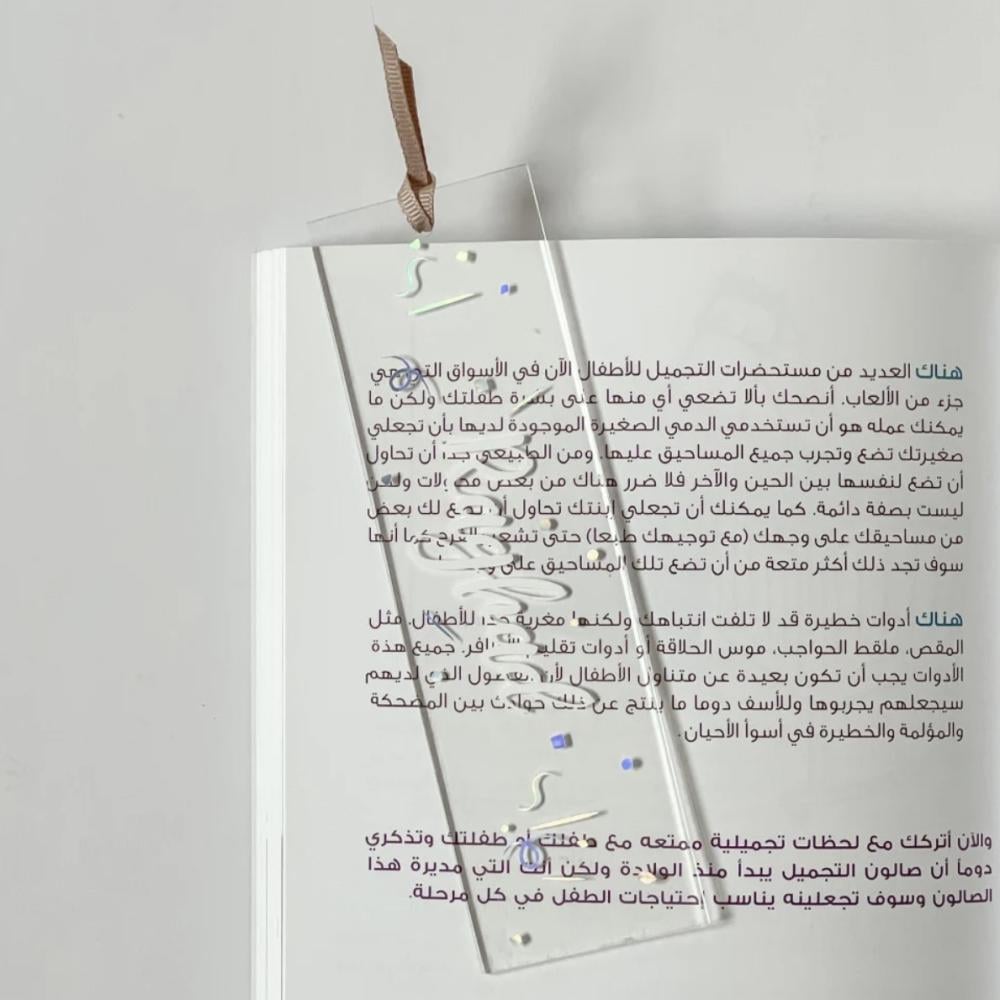 هناك العديد من مستحضرات التجميل للأطفال الآن في الأسواق التي هي
جزء من الألعاب. أنصحك بألا تضعي أي منها على بشرة طفلتك ولكن ما
يمكنك عمله هو أن تستخدمي الدمي الصغيرة الموجودة لديها بأن تجعلي
صغيرتك تضع وتجرب جميع المساحيق عليها. ومن الطبيعي جداً أن تحاول
أن تضع لنفسها بين الحين والآخر فلا ضرر هناك من بعض محاولات ولكن
ليست بصفة دائمة. كما يمكنك أن تجعلي إبنتك تحاول أن تضع لك بعض
من مساحيقك على وجهك (مع توجيهك طبعا) حتى تشعر بالفرح كما أنها
سوف تجد ذلك أكثر متعة من أن تضع تلك المساحيق على
هناك أدوات خطيرة قد لا تلفت انتباهك ولكنها مغرية جدا للأطفال. مثل
المقص، ملقط الحواجب، موس الحلاقة أو أدوات تقليم الأظافر. جميع هذة
الأدوات يجب أن تكون بعيدة عن متناول الأطفال لأن الذي لديهم
سيجعلهم يجربوها وللأسف دوما ما ينتج عن ذلك حوادث بين المضحكة
والمؤلمة والخطيرة في أسوأ الأحيان.
والآن أتركك مع لحظات تجميلية ممتعه مع طفلتك أو طفلتك وتذكري
دوماً أن صالون التجميل يبدأ منذ الولادة ولكن أنت التي مديرة هذا
الصالون وسوف تجعلينه يناسب إحتياجات الطفل في كل مرحلة.